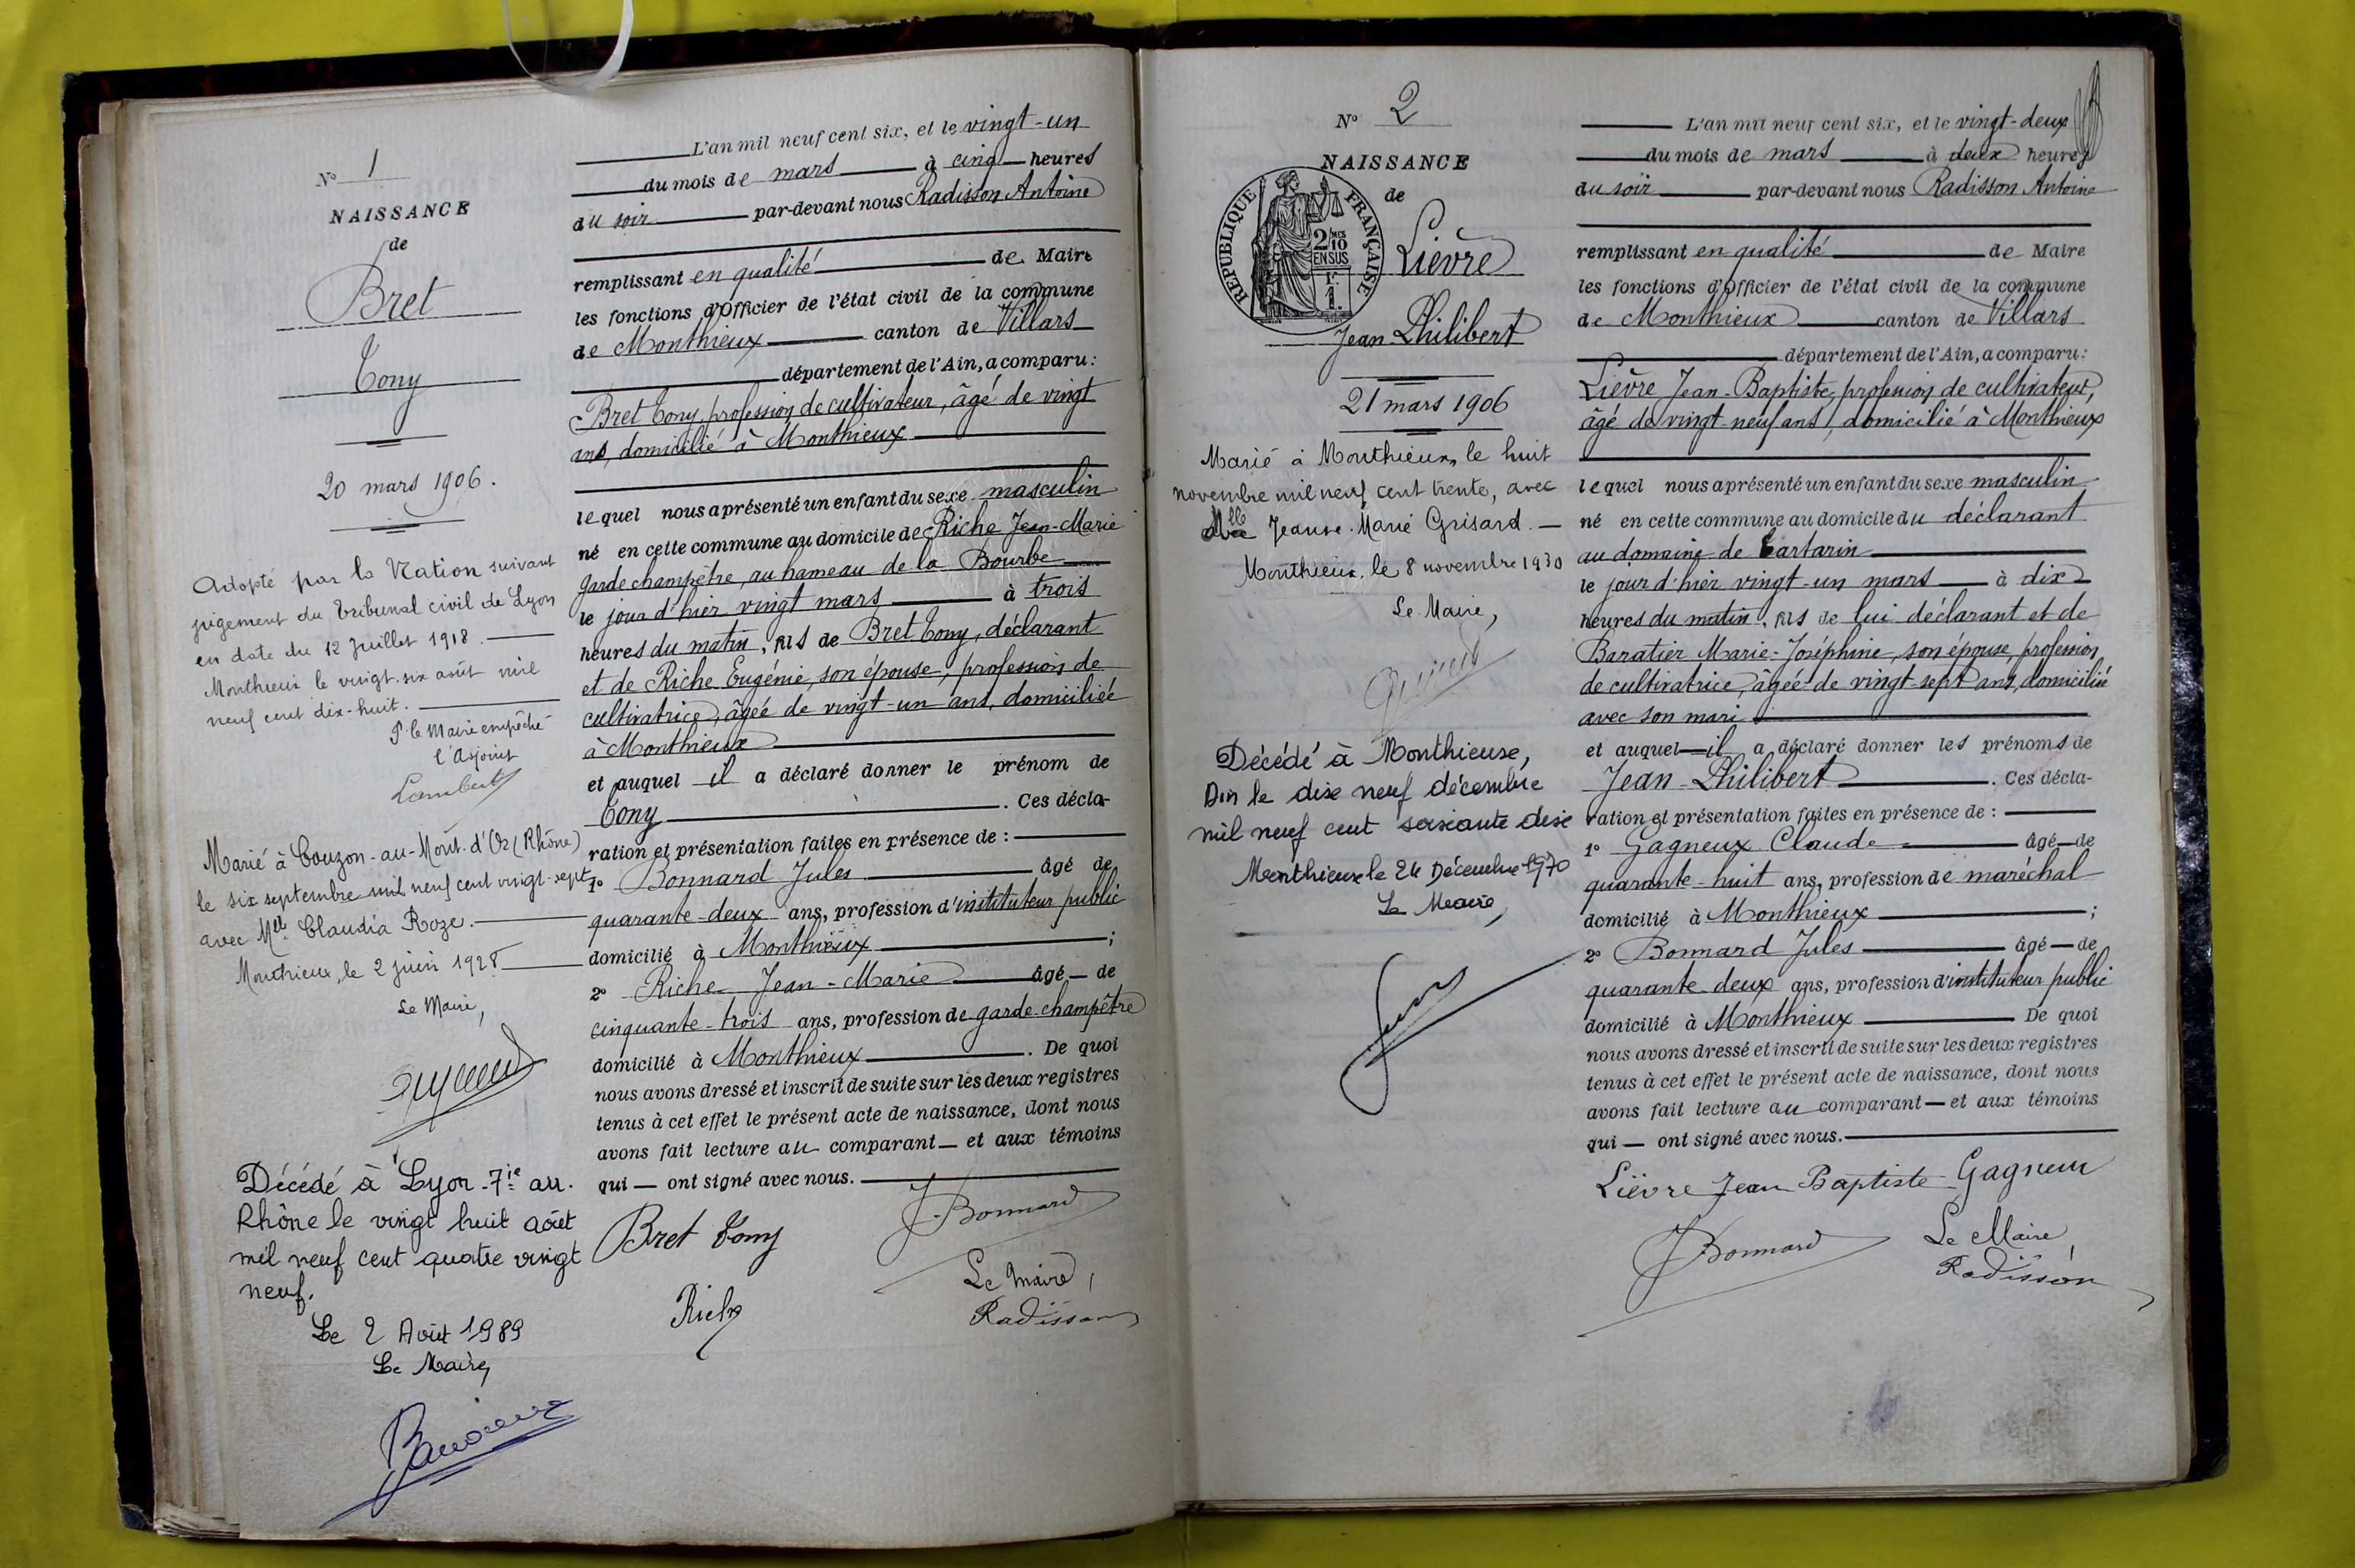 N° 1
NAISSANCE
de
Bret
Tony
20 mars 1906.
Adopté par la Nation suivant
jugement du Tribunal civil de Lyon
en date du 12 Juillet 1918.
Monthieux le vingt-six août mil
neuf cent dix-huit.
Pr le Maire empêché
l'Adjoint
Lambert
Marié à Couzon-au-Mont-d'Or (Rhône)
le six septembre mil neuf cent vingt-sept
avec Mlle Claudia Roze.
Monthieux, le 2 juin 1928
Le Maire,
Décédé à Lyon-7ie arr.
Rhône le vingt huit août
mil neuf cent quatre vingt
neuf.
Le 2 Août 1989
Le Maire,
L'an mil neuf cent six, et le vingt-un
du mois de mars à cinq heures
du soir par-devant nous Radisson Antoine
remplissant en qualité de Maire
les fonctions d'Officier de l'état civil de la commune
de Monthieux canton de Villars
département de l'Ain, a comparu:
Bret Tony, profession de cultivateur, âgé de vingt
ans, domicilié à Monthieux
lequel nous a présenté un enfant du sexe masculin
né en cette commune au domicile de Riche Jean-Marie
garde champêtre, au hameau de la Bourbe
le jour d'hier vingt mars à trois
heures du matin, fils de Bret Tony, déclarant
et de Riche Eugénie, son épouse, profession de
cultivatrice, âgée de vingt-un ans, domiciliée
à Monthieux
et auquel il a déclaré donner le prénom de
Tony. Ces décla-
ration et présentation faites en présence de :
1° Bonnard Jules âgé de
quarante-deux ans, profession d'instituteur public
domicilié à Monthieux ;
2° Riche Jean-Marie âgé de
cinquante-trois ans, profession de garde-champêtre
domicilié à Monthieux. De quoi
nous avons dressé et inscrit de suite sur les deux registres
tenus à cet effet le présent acte de naissance, dont nous
avons fait lecture au comparant et aux témoins
qui ont signé avec nous.
Bret Tony
J. Bonnard
Riche
Le Maire,
Radisson
N° 2
NAISSANCE
de
REPUBLIQUE FRANÇAISE
2/10 MES
EN SUS
1 F.
Lièvre
Jean-Philibert
21 mars 1906
Marié à Monthieux, le huit
novembre mil neuf cent trente, avec
Mlle Jeanne-Marie Grisard.
Monthieux, le 8 novembre 1930
Le Maire,
Décédé à Monthieuse,
Din le dix neuf décembre
mil neuf cent soixante dix
Monthieux le 24 Décembre 1970
Le Maire,
L'an mil neuf cent six, et le vingt-deux
du mois de mars à deux heures
du soir par-devant nous Radisson Antoine
remplissant en qualité de Maire
les fonctions d'Officier de l'état civil de la commune
de Monthieux canton de Villars
département de l'Ain, a comparu:
Lièvre Jean-Baptiste, profession de cultivateur,
âgé de vingt-neuf ans, domicilié à Monthieux
lequel nous a présenté un enfant du sexe masculin
né en cette commune au domicile du déclarant
au domaine de Tartarin
le jour d'hier vingt-un mars à dix
heures du matin, fils de lui déclarant et de
Baratier Marie-Joséphine, son épouse, profession
de cultivatrice, âgée de vingt-sept ans, domiciliée
avec son mari
et auquel il a déclaré donner les prénoms de
Jean-Philibert. Ces décla-
ration et présentation faites en présence de :
1° Gagneux Claude âgé de
quarante-huit ans, profession de maréchal
domicilié à Monthieux ;
2° Bonnard Jules âgé de
quarante-deux ans, profession d'instituteur public
domicilié à Monthieux De quoi
nous avons dressé et inscrit de suite sur les deux registres
tenus à cet effet le présent acte de naissance, dont nous
avons fait lecture au comparant et aux témoins
qui ont signé avec nous.
Lièvre Jean Baptiste Gagneux
J. Bonnard
Le Maire,
Radisson